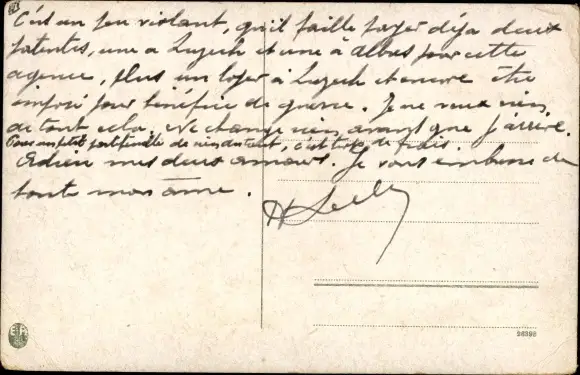 C'est un peu violant, qu'il faille payer déja deux
patentes, une a Luzech et une à Albas pour cette
agence, plus un loyer à Luzech et encore être
imposé pour bénéfice de guerre. Je ne veux rien
de tout cela. Ne change rien avant que j'arrive.
Pour un petit portefeuille de rien du tout, c'est trop de frais
Adieu mes deux amours. Je vous embrasse de
toute mon âme.
98396